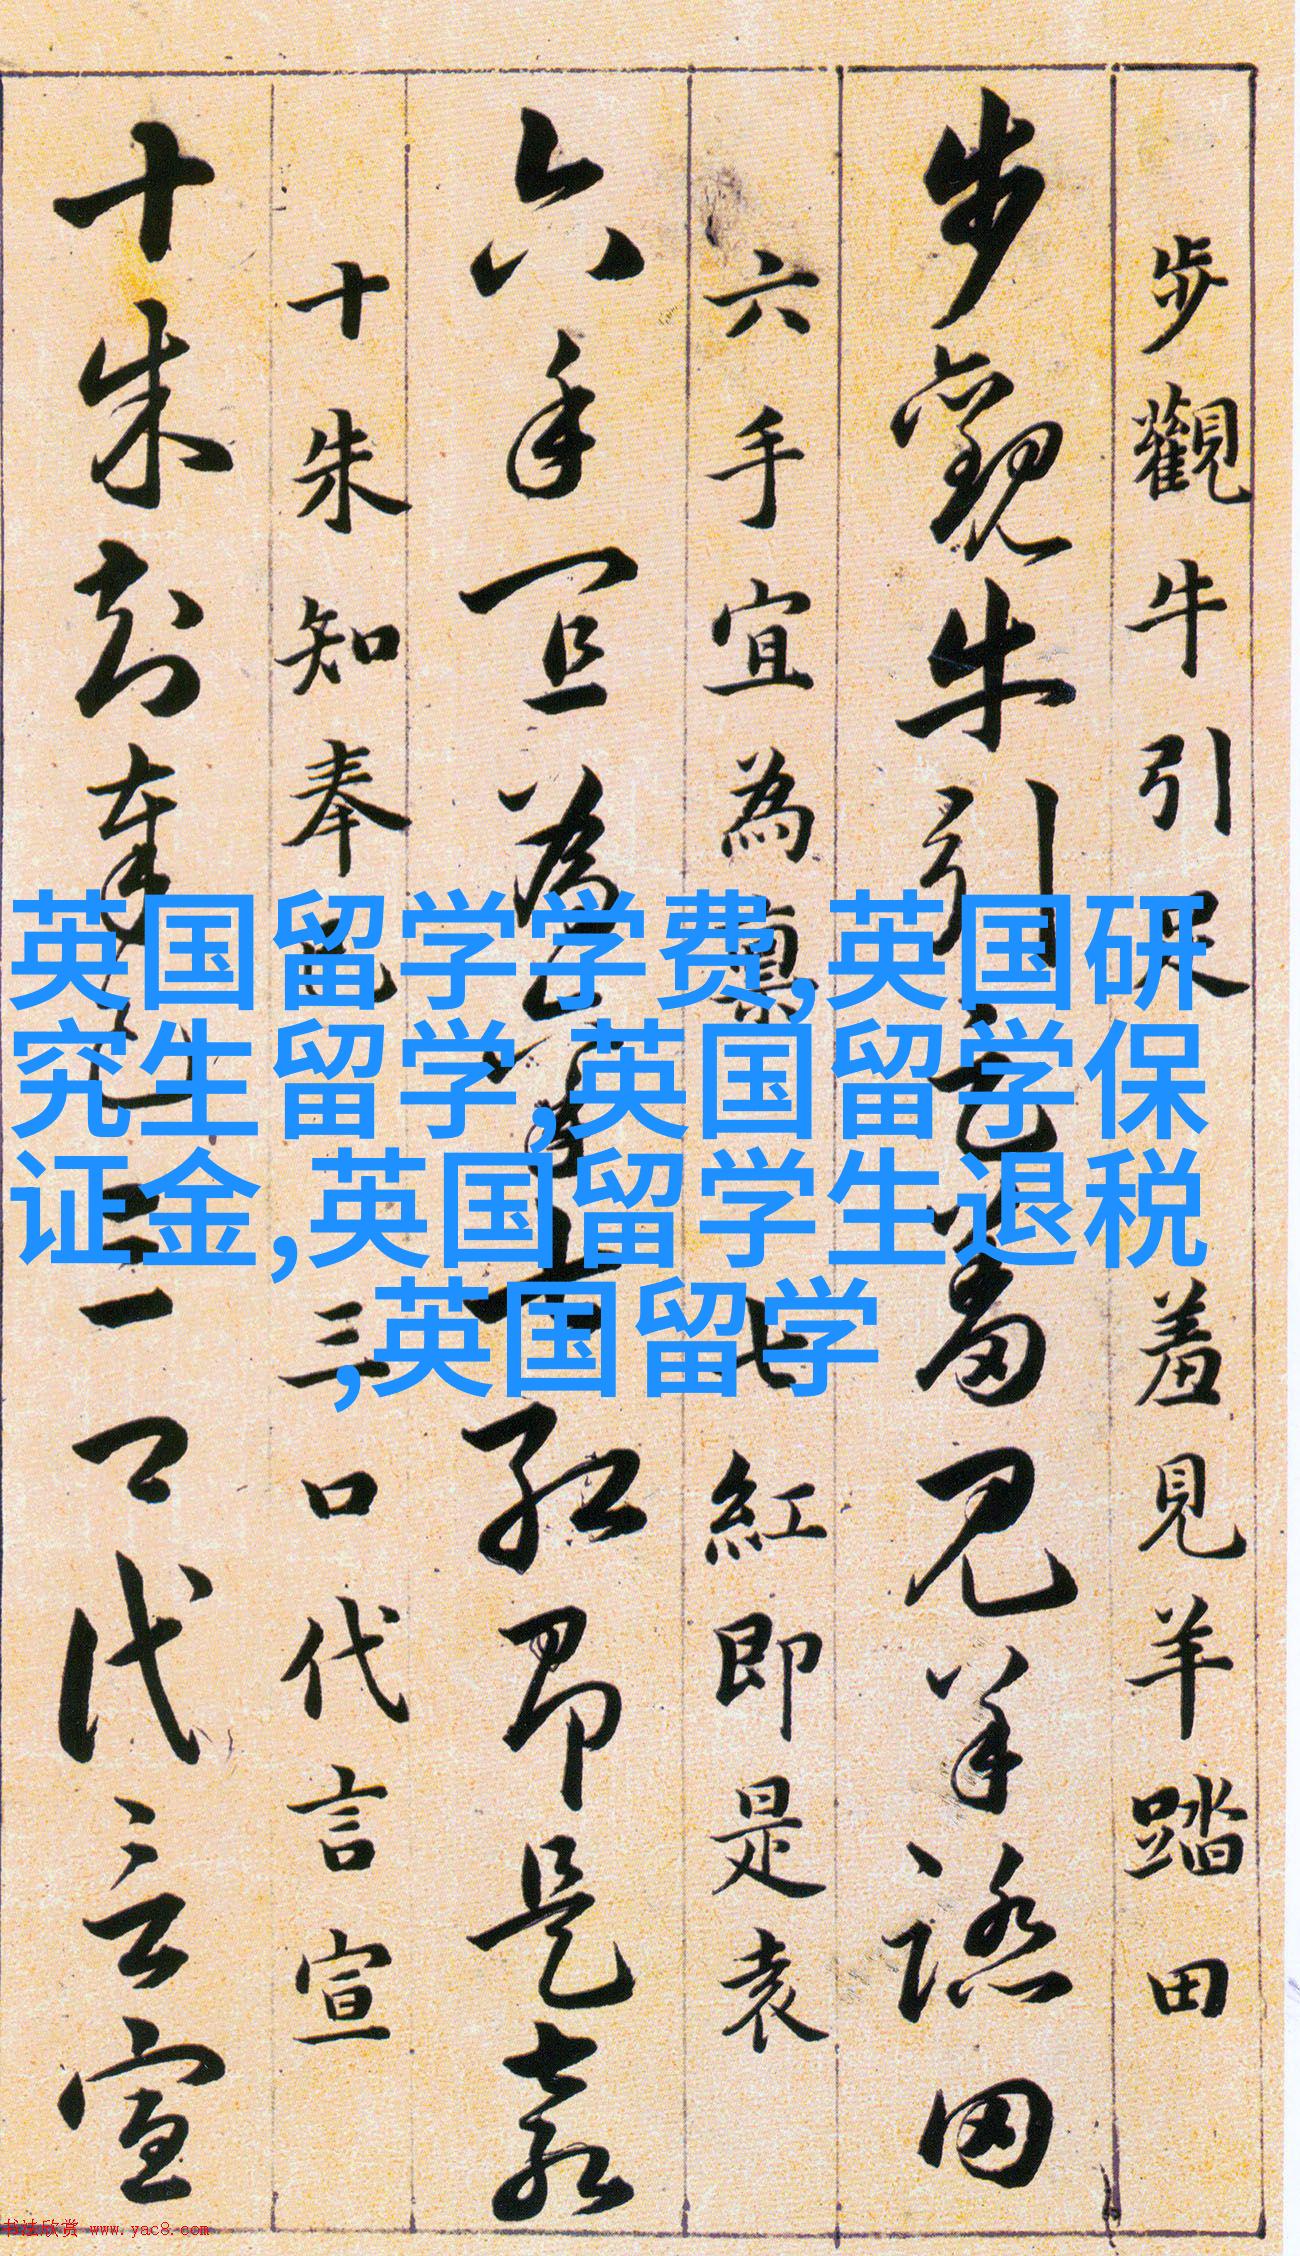 步觀牛引足 羞見羊踏田
步觀牛引足羞見羊踏田
六手宜為稟 七紅即是袁
六手宜為稟七紅即是袁
十朱知奉已 三口代言宣
十朱知奉已三口代言宣
英国留学学费,英国研
究生留学,英国留学保
证金,英国留学生退税
,英国留学
书法欣赏 www.yac8.com